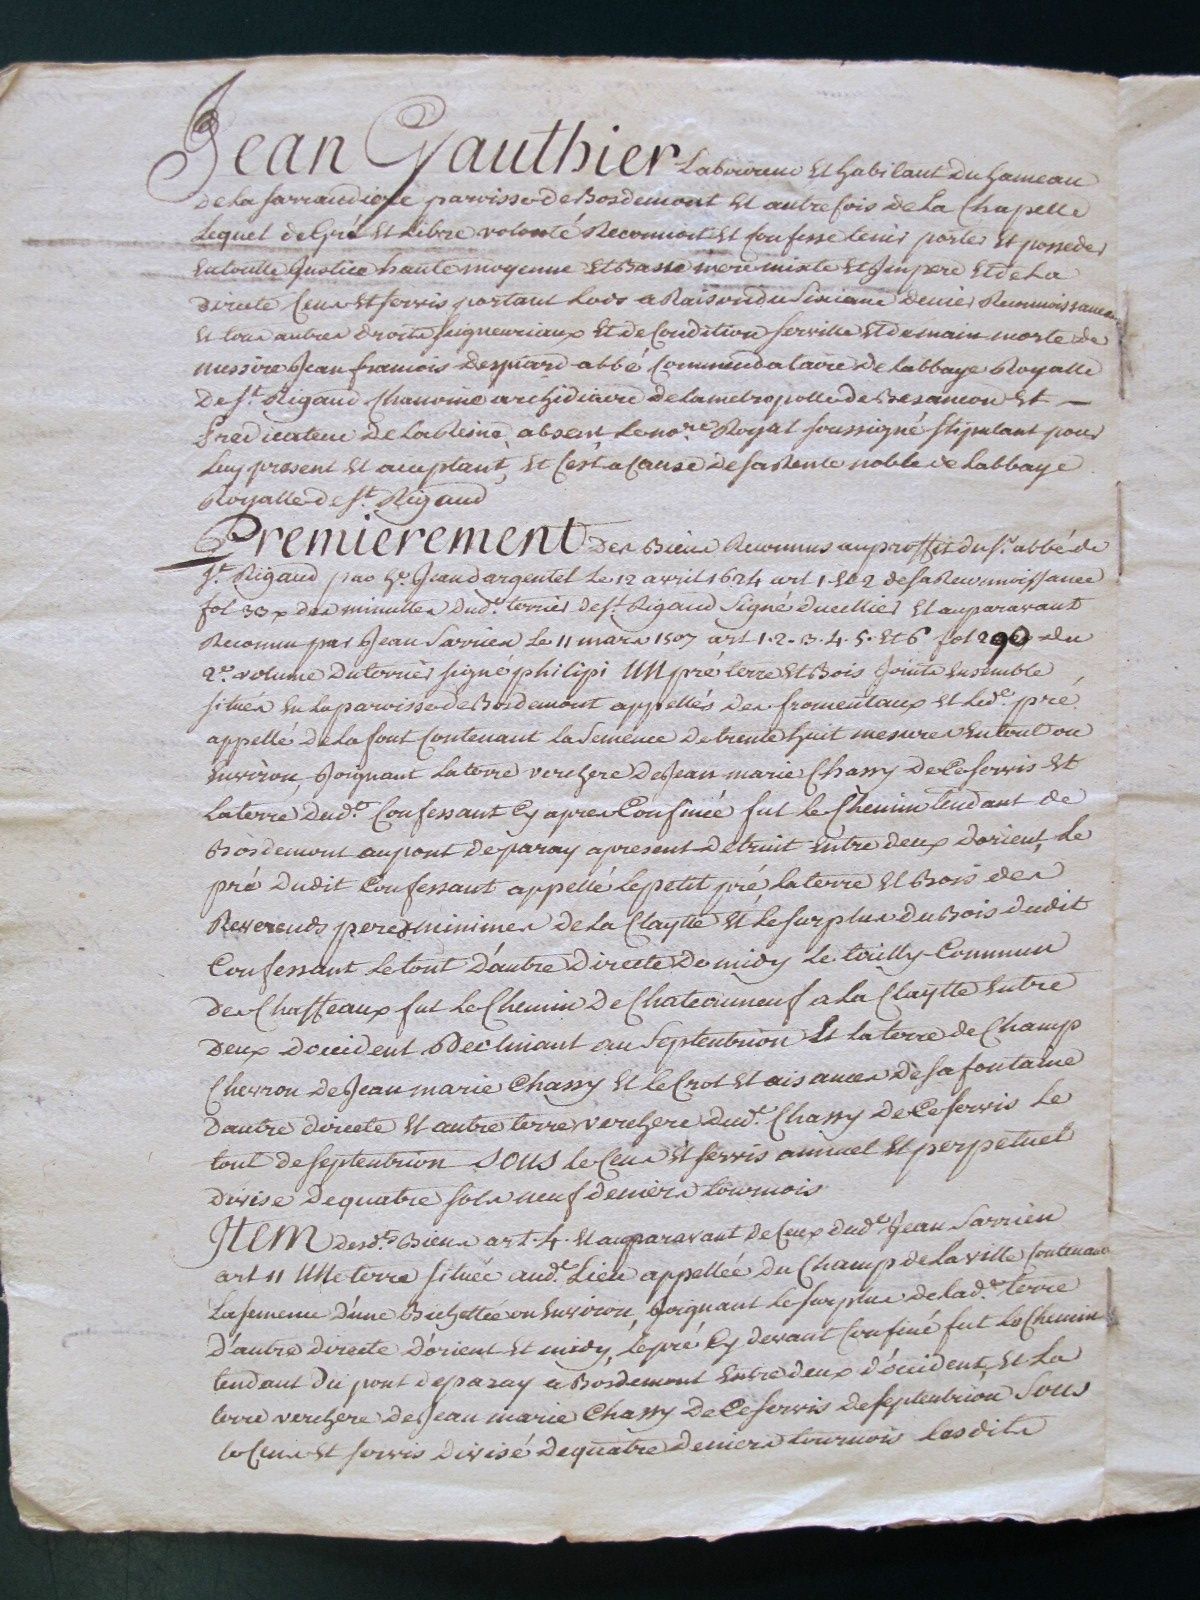 Jean Gauthier Laboureur Et habitant Du hameau
De La farraudiere parroisse de Bosdemont Et autrefois de La Chapelle
Lequel de Gré Et Libre volonté Reconnoit Et Confesse tenir porter Et posseder
En toutte Justice haute moyenne Et Basse mere mixte Et Impere Et de La
Directe Cens Et servis portant Lods a Raison du Sixieme denier Reconnoissance
Et tous autres droits seigneuriaux Et de Condition serville Et de main morte de
messire Jean francois Despiard abbé Commendataire de Labbaye Royalle
De St. Rigaud Chanoine archidiacre de la metropolle de Besancon Et
Predicateur De La Reine, absent Le nore. Royal soussigné stipulant pour
Luy present Et acceptant, Et C'est a Cause de sa Rente noble de Labbaye
Royalle de St. Rigaud
Premierement Des Biens Reconnus au proffit du sr. abbé de
St. Rigaud par hr. Jean dargentel Le 12 avril 1624 art 1. Et 2 de sa Reconnoissance
fol 33 des minuttes Dudt. terrier de St Rigaud Signé ducellier Et auparavant
Reconnu par Jean Sarrien Le 11 mars 1507 art 1. 2. 3. 4. 5. Et 6 fol 290 du
2e. volume Du terrier signé philipi UN pré terre Et Bois Joints Ensemble
situés En La parroisse de Bosdemont appellés des fromentaux Et Ledt. pré
appellé De La font Contenant La Semence De trente huit mesures En tout ou
Environ, Joignant La terre verchere De Jean marie Chassy de Ce servis Et
La terre Dudt. Confessant Cy apres Confinée fut Le Chemin tendant de
Bosdemont au pont De paray a present Detruit Entre deux D'orient, Le
pré Dudit Confessant appellé Le petit pré, La terre Et Bois des
Reverends peres minimes de La Claytte Et Le surplus Du Bois dudit
Confessant Le tout D'autre Directe De midy Le tailly Commun
Des Chasseaux fut Le Chemin De Chateauneuf a La Claytte Entre
Deux Doccident Declinant au Septentrion Et La terre de Champ
Chevron De Jean marie Chassy Et Le Crot Et aisances De sa fontaine
D'autre directe Et autre terre verchere Dudt. Chassy De Ce servis Le
tout De septentrion SOUS Le Cens Et servis annuel Et perpetuel
Divise De quatre sols neuf deniers tournois
ITEM Desdts. Biens art. 4. Et auparavant De Ceux dudt. Jean Sarrien
art 11 UNe terre située audt. Lieu appellée Du Champ de La ville Contenant
La semence D'une Bichettée ou Environ, Joignant Le surplus de Ladte. terre
D'autre directe D'orient Et midy, Le pré Cy devant Confiné fut Le Chemin
tendant Du pont de paray a Bosdemont Entre deux d'occident, Et La
terre verchere de Jean marie Chassy De Ce servis De septentrion Sous
Le Cens Et servis divisé De quatre Deniers tournois Lesdits